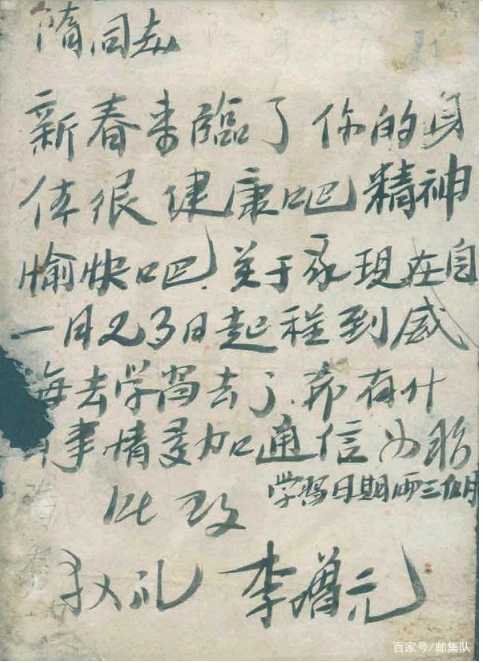 隋同志
新春来臨了你的身
体很健康吧精神
愉快吧关于我現在自
一月23日起程到威
海去学習去了希有什
事情多加通信为盼
学習日期两三個月
此致
敬礼 李增元
百家号/邮集队